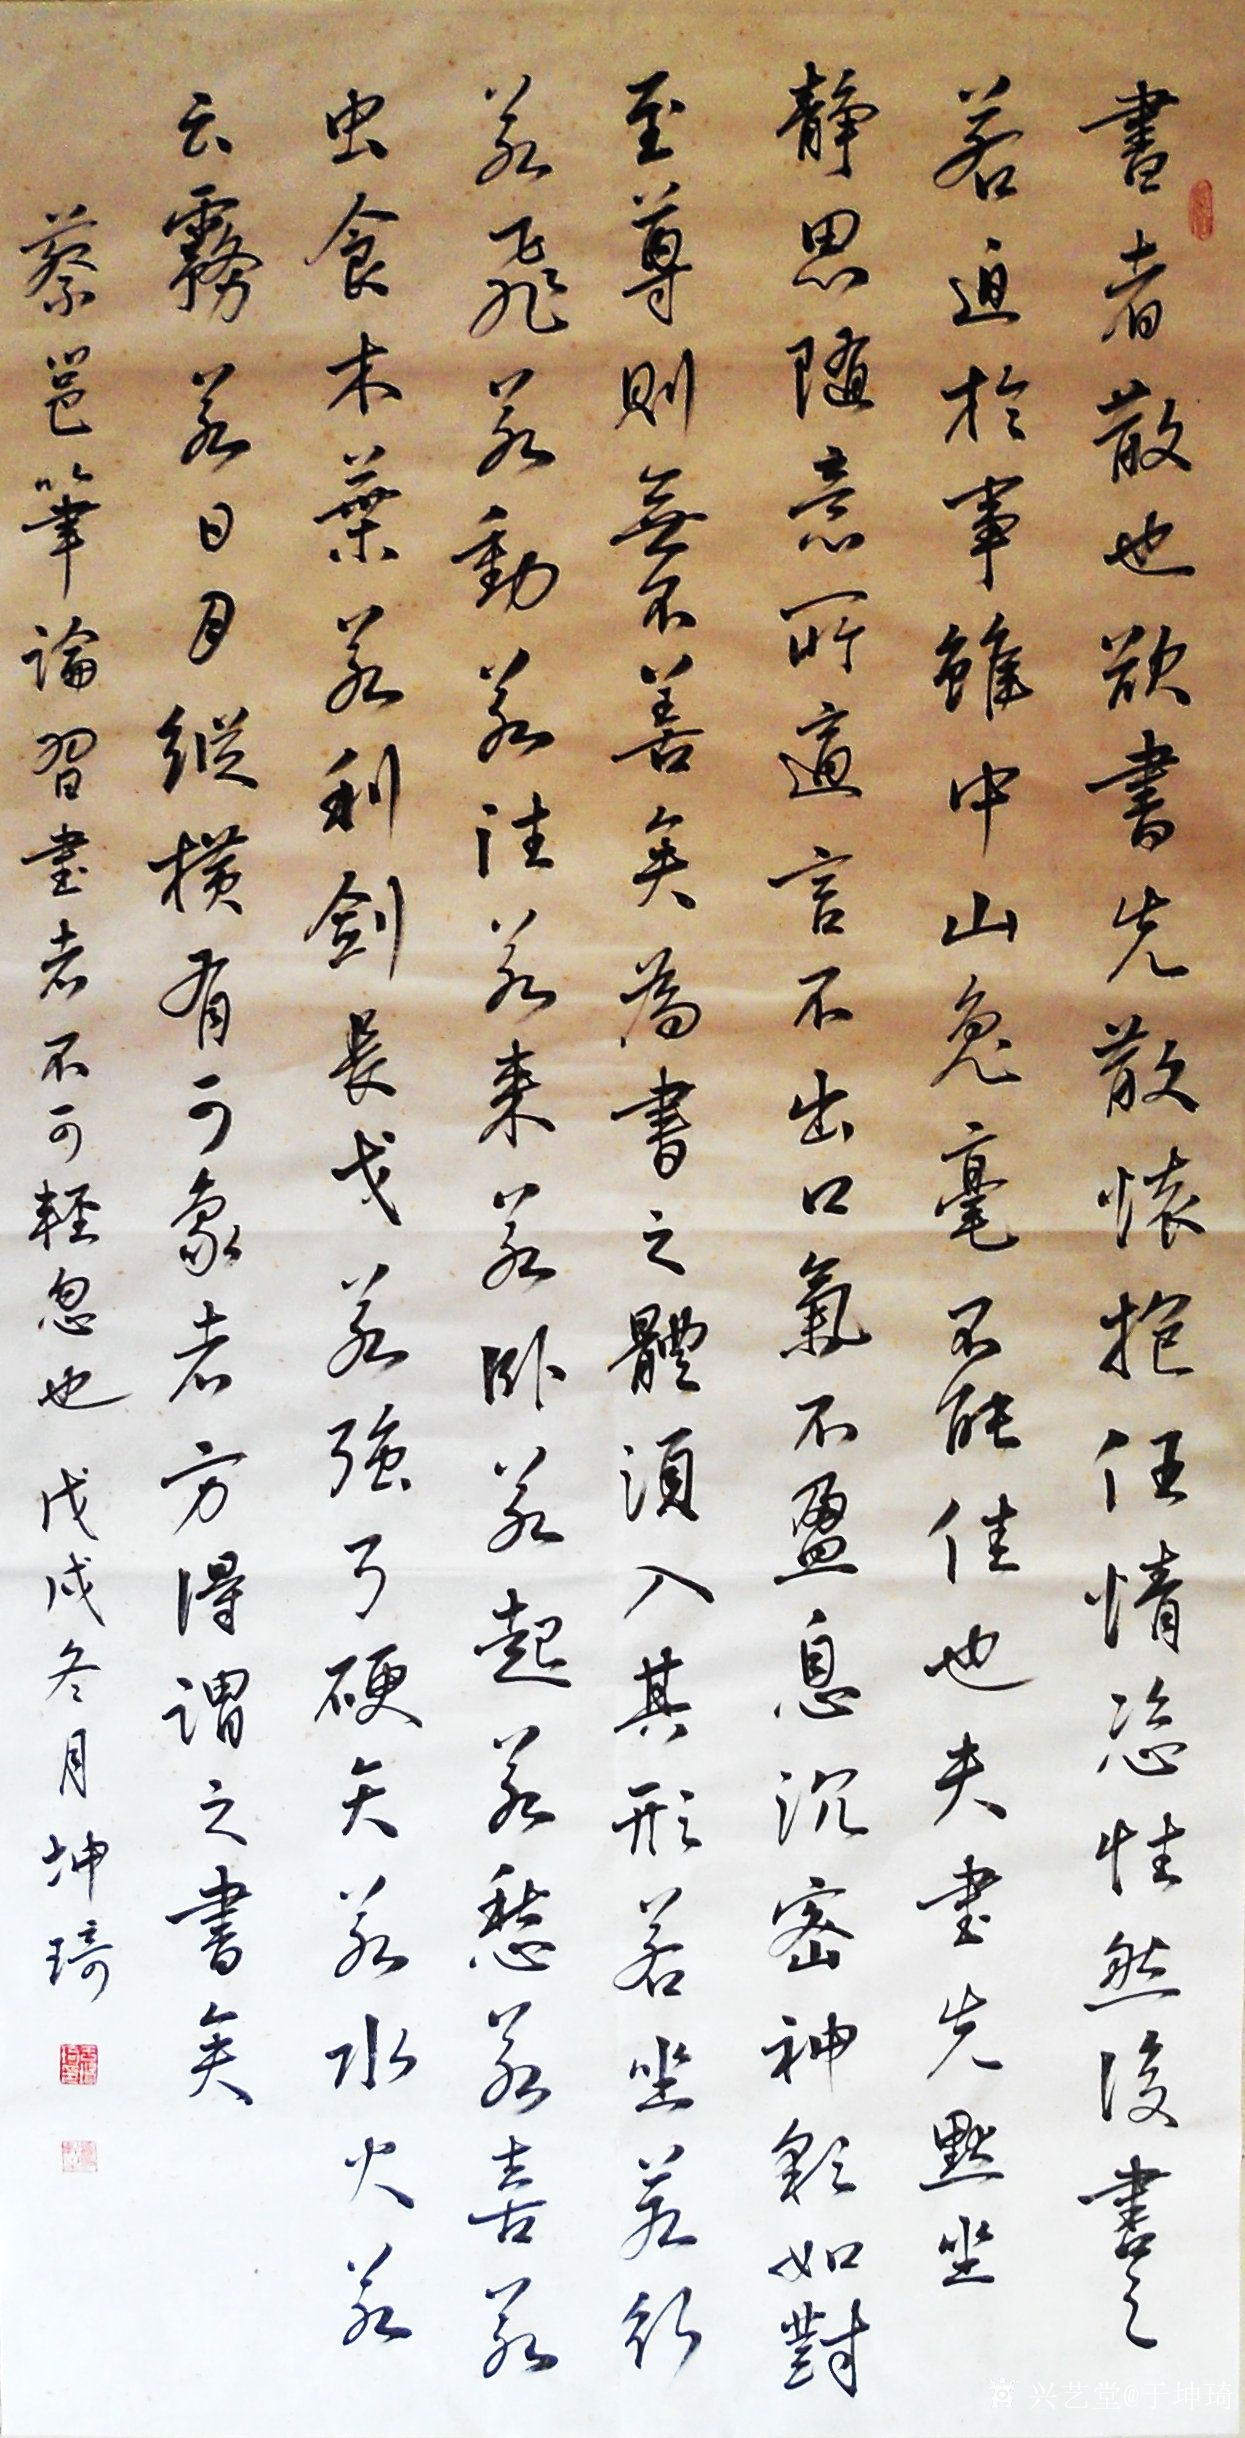 書者散也欲書先散懷抱任情恣性然後書之
若迫於事雖中山兔毫不能佳也夫書先默坐
靜思隨意所適言不出口氣不盈息沉密神彩如對
至尊則無不善矣為書之體須入其形若坐若行
若飛若動若往若來若臥若起若愁若喜若
虫食木葉若利劍長戈若強弓硬矢若水火若
云霧若日月縱橫有可象者方得謂之書矣
蔡邕筆論習書者不可輕忽也 戊戌冬月坤琦
兴艺堂@于坤琦